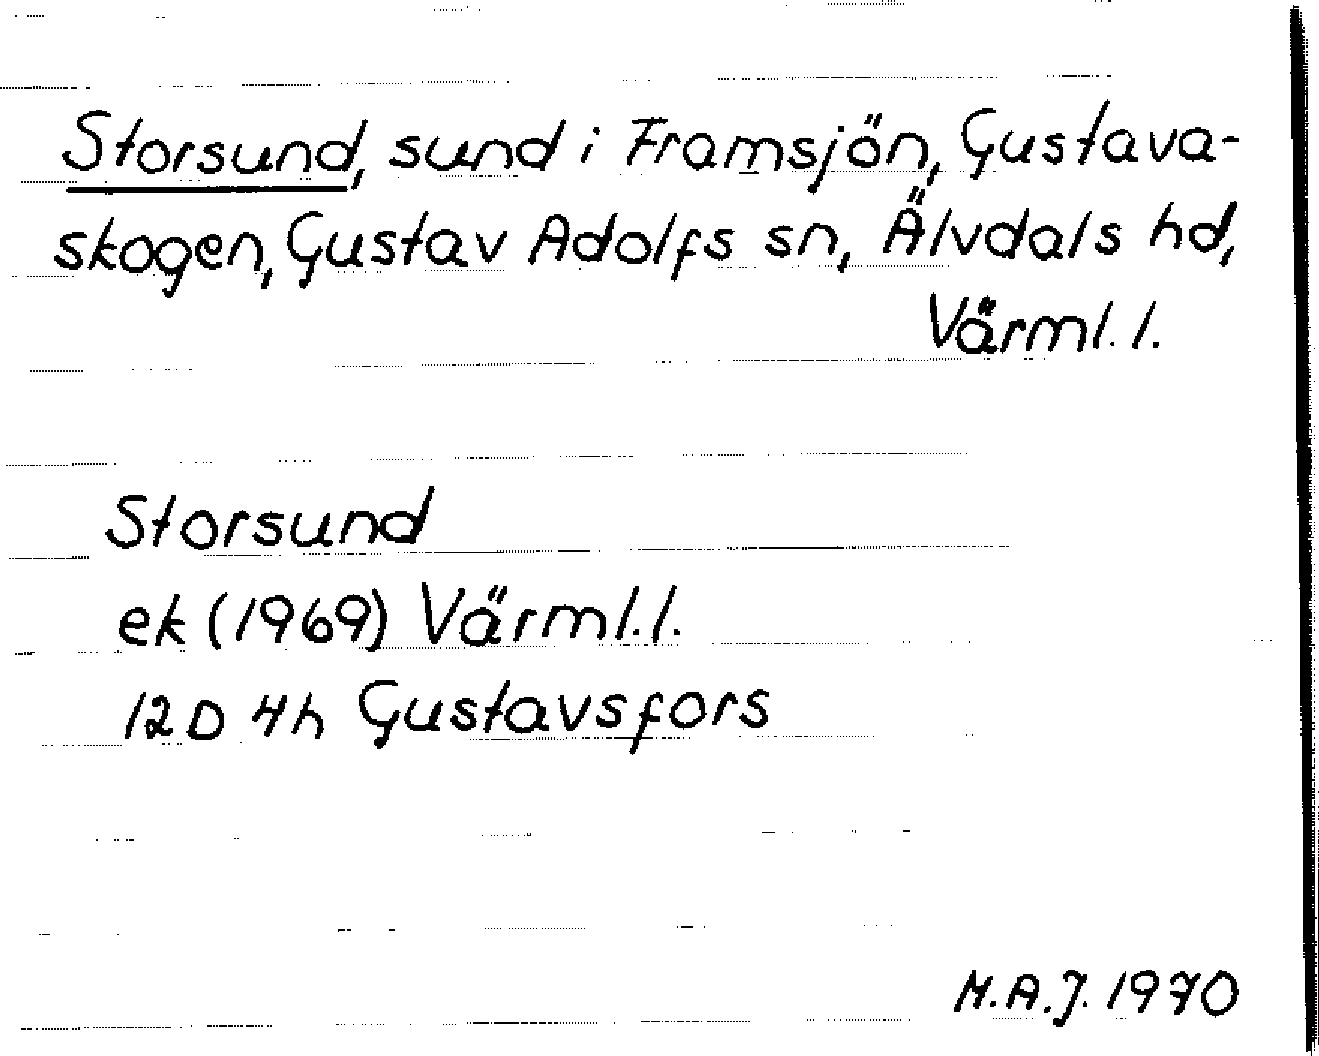 Storsund, sund i Framsjön, Gustava-
skogen, Gustav Adolfs sn, Älvdals hd,
Värml. l.
Storsund
ek (1969) Värml. l.
12 D 4h Gustavsfors
M.A.J. 1970